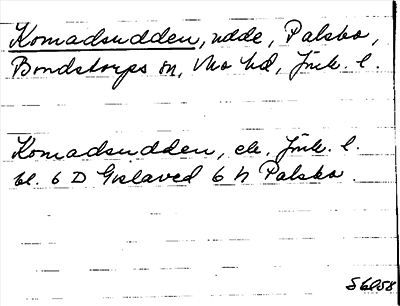 Komadsudden, udde, Palsbo,
Bondstorps sn, Mo hd, Jönk. l.
Komadsudden, ek. Jönk. l.
bl. 6 D Gislaved 6 h Palsbo.
S6058